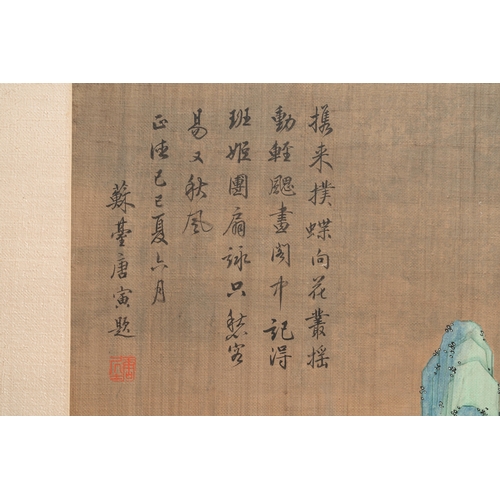 携来撲蝶向花叢揺
動輕颸畫閣中記得
班姬團扇詠只愁容
易又秋風
正德己巳夏六月
蘇臺唐寅題